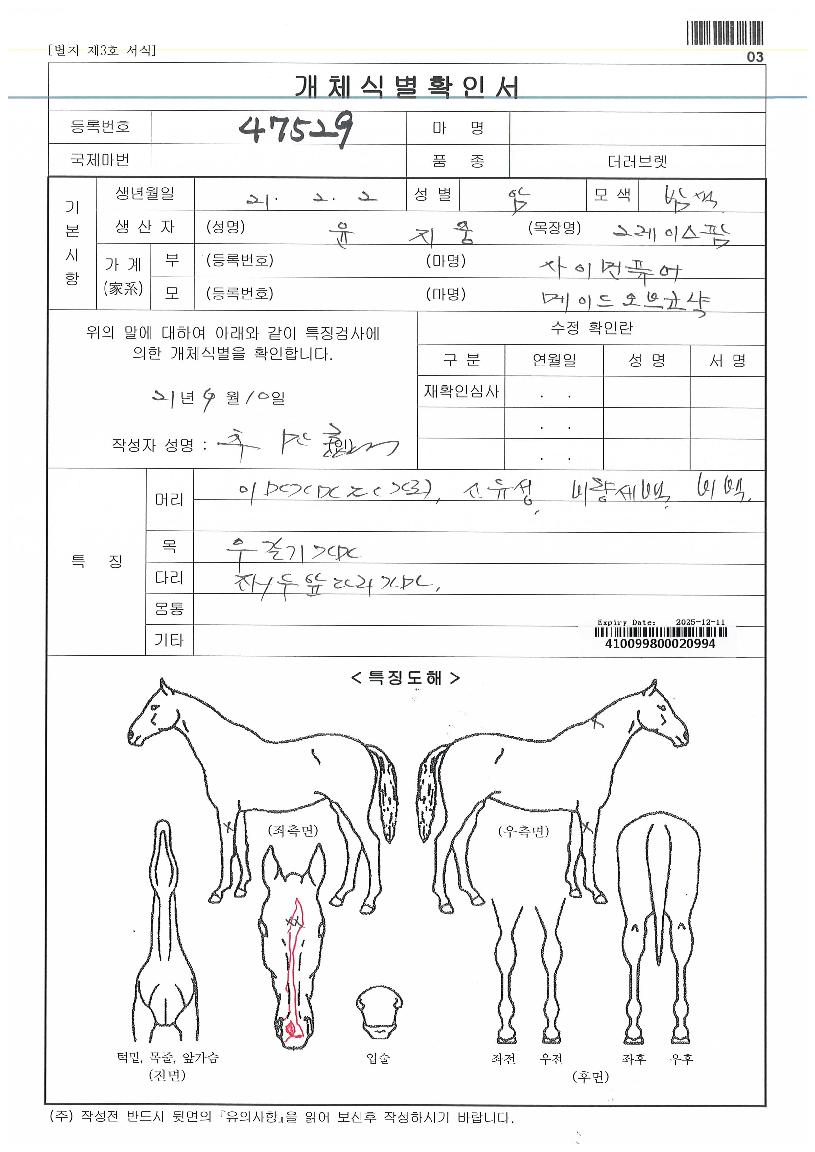 [별지 제3호 서식]
03
개체식별확인서
등록번호 47529 마 명
국제마번 품 종 더러브렛
기본사항
생년월일 21. 2. 2 성 별 암 모 색 밤색
생 산 자 (성명) 윤 지 웅 (목장명) 그레이스팜
가 계 (家系)
부 (등록번호) (마명)
모 (등록번호) (마명)
위의 말에 대하여 아래와 같이 특징검사에
의한 개체식별을 확인합니다.
21년 9월 10일
작성자 성명 : (인)
수정 확인란
구 분 연월일 성 명 서 명
재확인심사 . .
. .
. .
특 징
머리 비량세백, 비백.
목
다리
몸통
기타
Expiry Date: 2025-12-11
410099800020994
< 특징도해 >
(좌측면) (우측면)
턱밑, 목줄, 앞가슴 입술 좌전 우전 좌후 우후
(전면) (후면)
(주) 작성전 반드시 뒷면의 『유의사항』을 읽어 보신후 작성하시기 바랍니다.